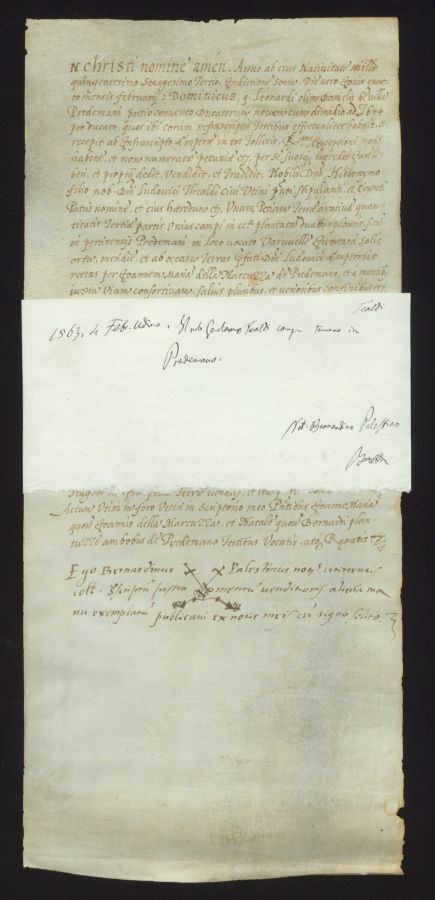 N Christi nomine amen. Anno ab eius Nativitate Mill.o
quingentesimo Sexagesimo Tertio. Indictione Sexta Die vero Iovis quar
to mensis februarij: Dominicus. q. Leonardi olim Danielis de villa
Predemani pretio convento Ducatorum novem cum dimidio ad
pro ducato, quos ibi coram infrascriptis Testibus effectualiter habuit, et
recepit ab Infrascripto Emptore in tot Solleris. exceptioni non
habitae, et non numeratae pecuniae etc. per se suosq. haeredes
ben, et proprij dedit, Vendidit, et Tradidit Nobili Dno Hieronymo
filio nob. Dni Ludovici Thealdi Civi Utini pnti stipulanti, et Ementi
Patris nomine, et eius haeredum etc. Unam Petiam Terrae arativae quan
titatis Tertiae partis Unius campi in ea plantatae duabus plantis, sitae
in pertinentijs Predemani in loco vocato Varuvelle iuxta Solis
ortu, meridie, et ab occasu Terras pfati Dni Ludovici Emptoris
rectas per Ioannem Maria della Marcuzza de Predemano, et a montibus
iuxta Viam consortivam, salvis pluribus, et verioribus confinibus etc.
Tealdi
1563, 4 Febr. Udine. Il nob Gerolamo Tealdi compra terreno in
Predemano.
Not. Bernardino Palestino
Beretta
Terrae
Actum Utini in foro Veteri in Scriptorio meo Pntibus Ioanne Maria
quon Ioannis della Marcuzza, et Natale quon Bernardi
ambobus de Predemano Testibus Vocatis atq. Rogatis
Ego Bernardinus Palestinus not.s utinensis
venditionis aliena ma
nu exemplatu publicavi ex notis meis cu signo solito.